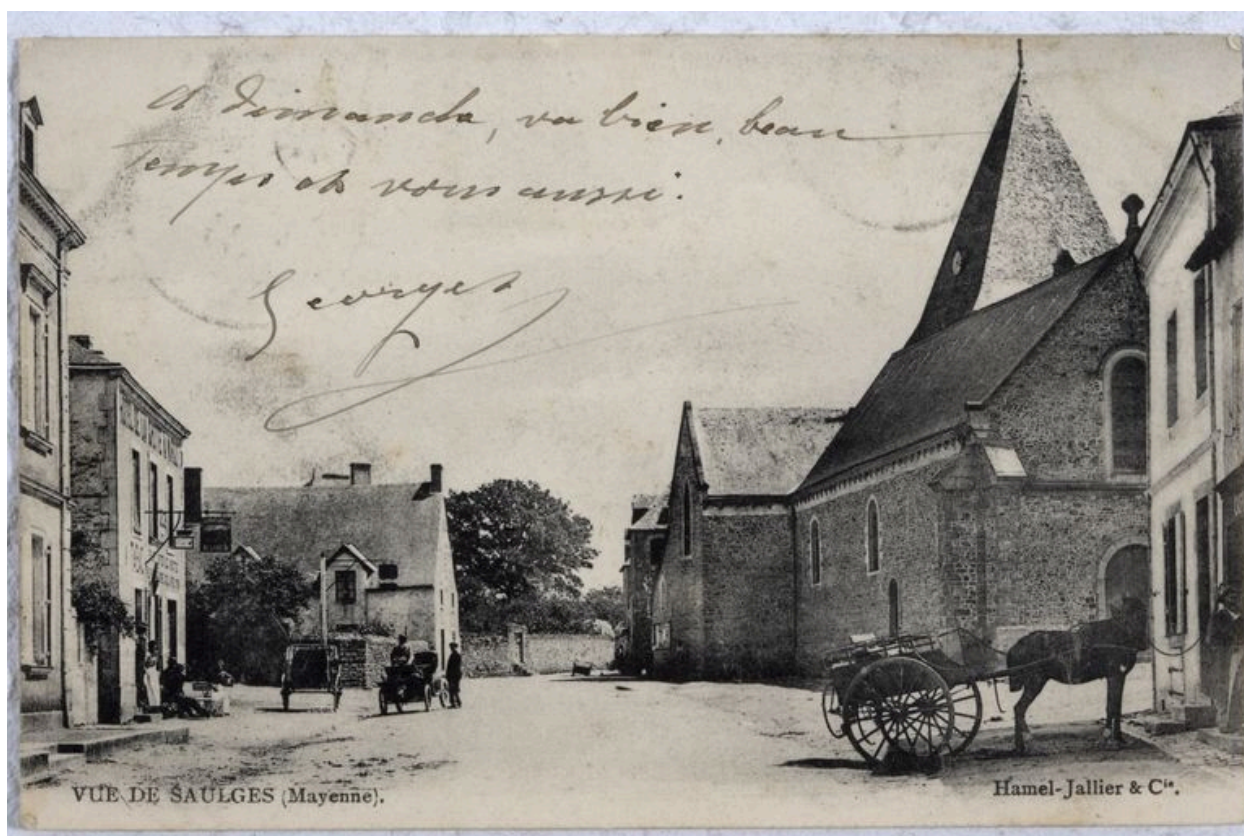 A dimanche, va bien, beau
temps et vous aussi.
Georges
VUE DE SAULGES (Mayenne).
Hamel-Jallier & Cie.